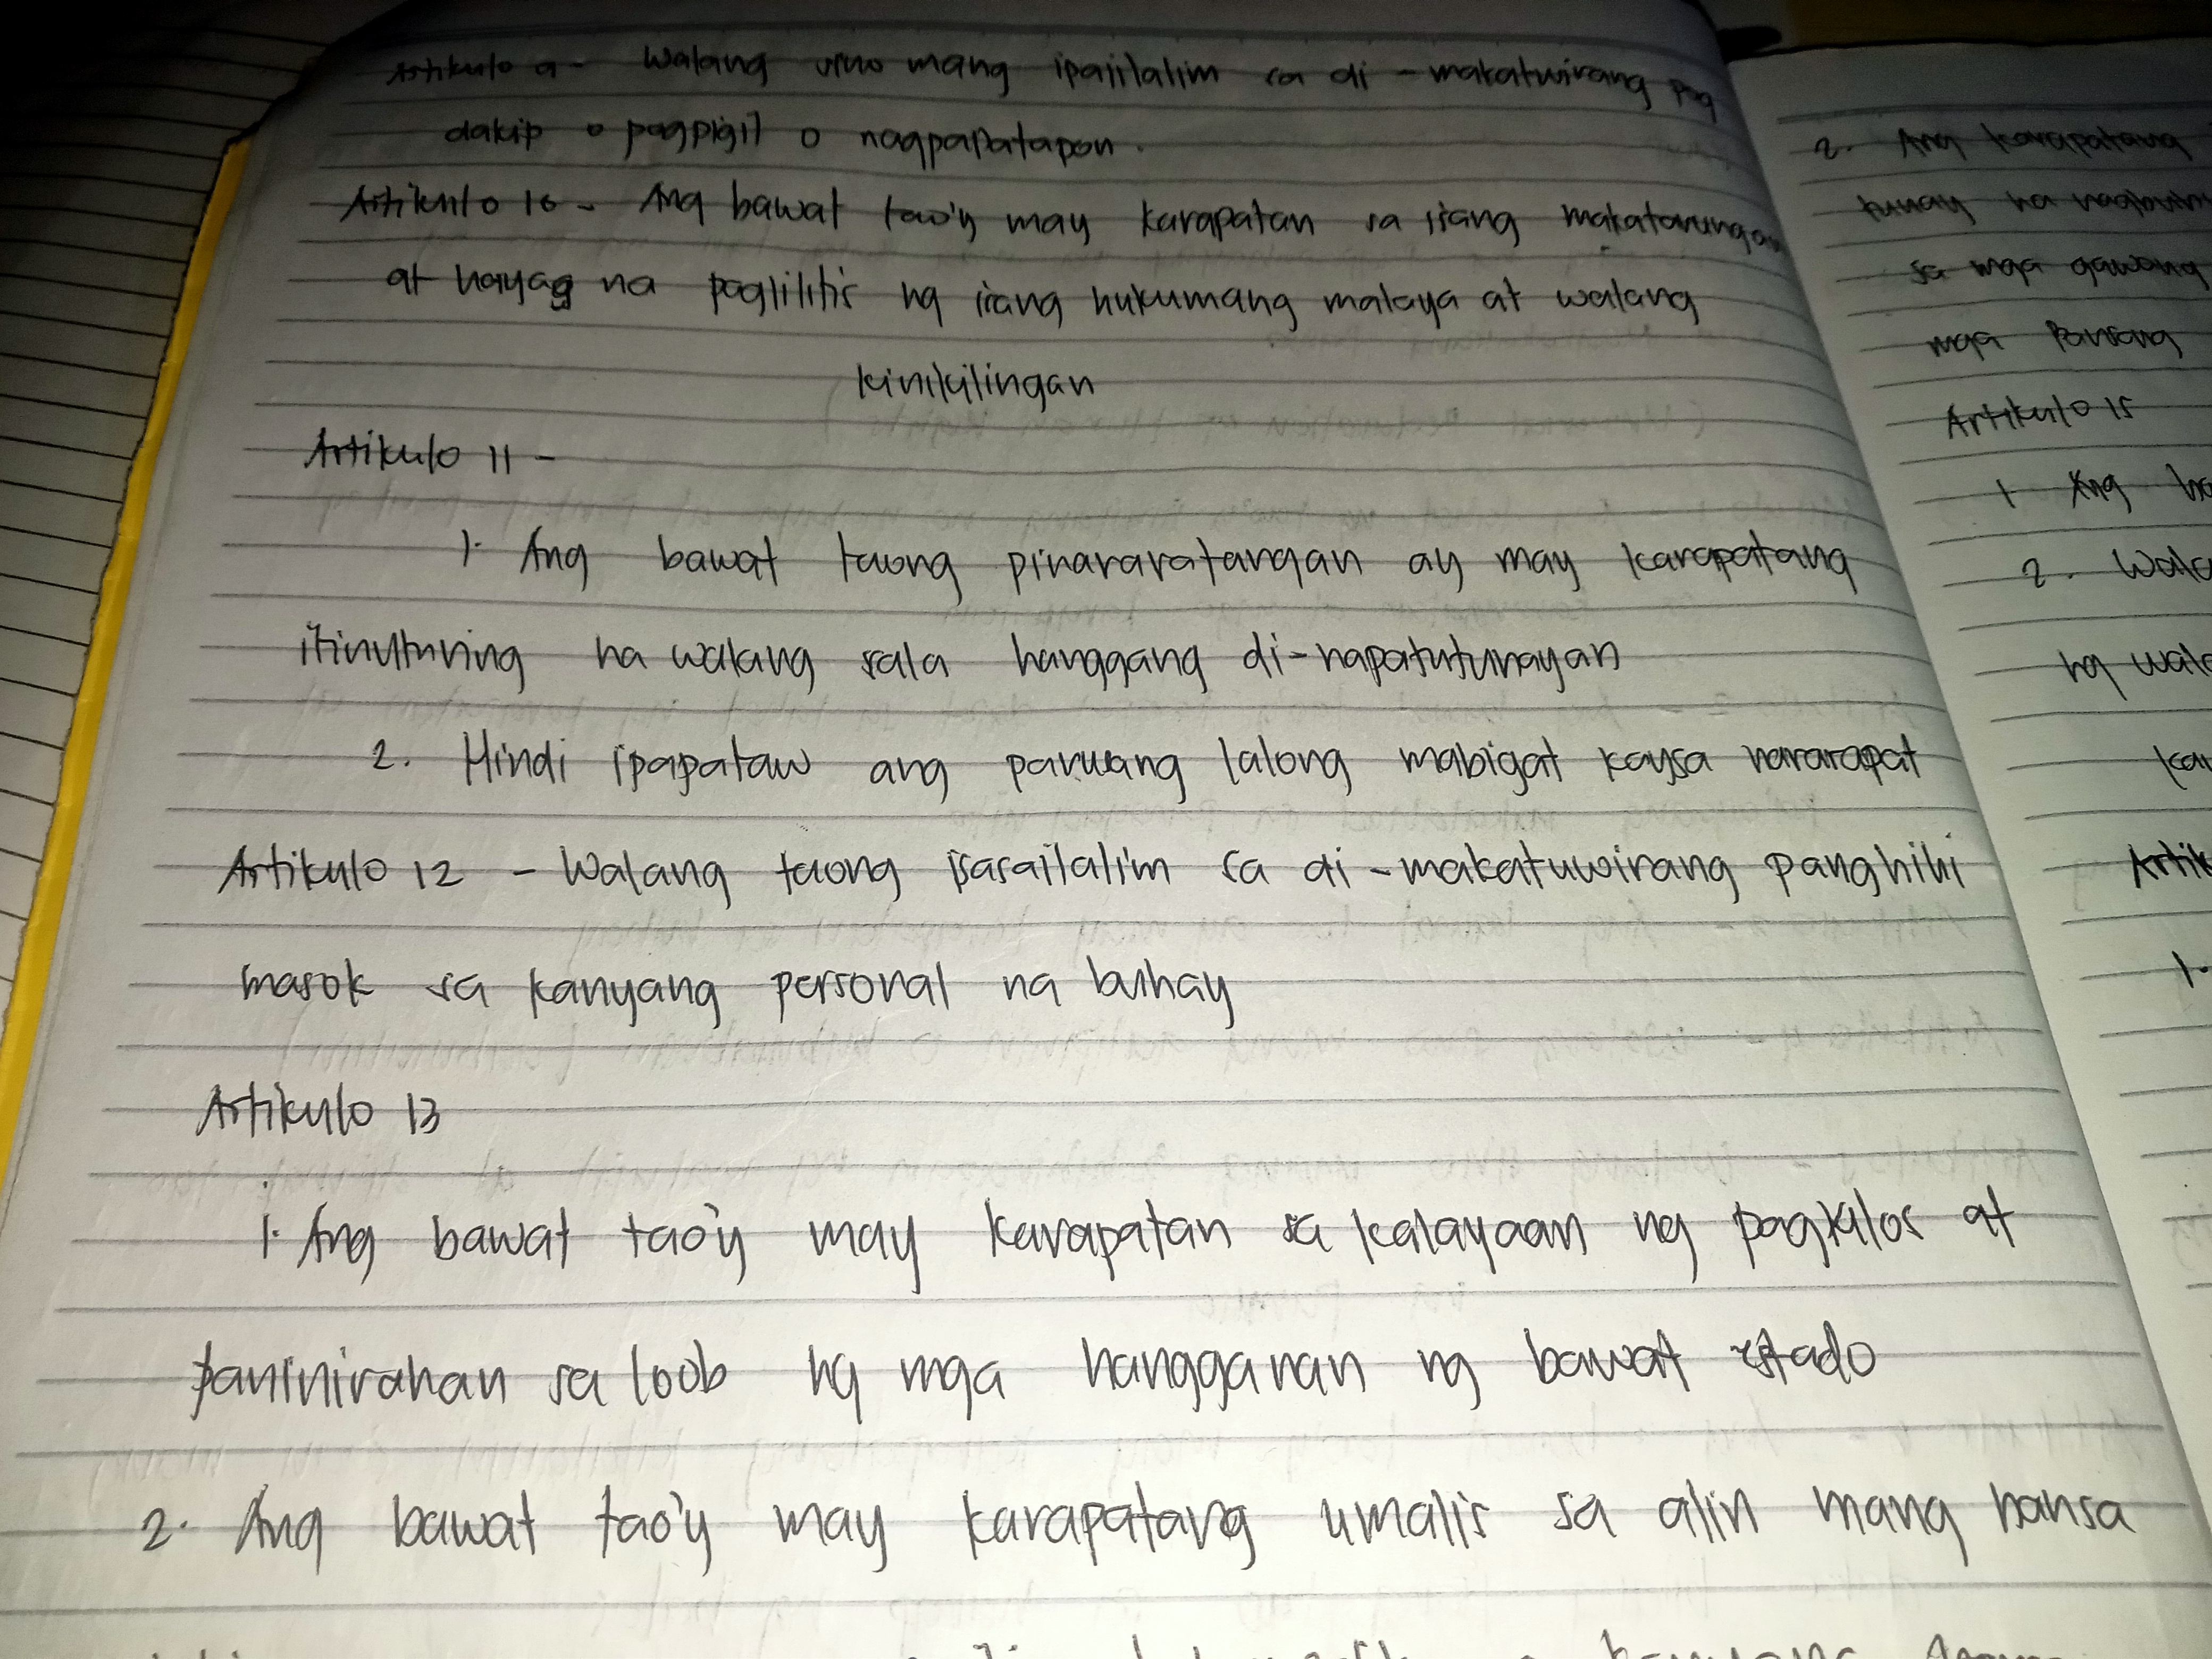 Artikulo 9 - Walang sino mang ipaiilalim sa di - makatwirang pag
dakip o pagpigil o nagpapatapon.
Artikulo 10 - Ang bawat tao'y may karapatan sa isang makatarungan
at hayag na paglilitis ng isang hukumang malaya at walang
kinikilingan
Artikulo 11 -
1. Ang bawat taong pinararatangan ay may karapatang
itinuturing na walang sala hanggang di-napatutunayan
2. Hindi ipapataw ang parusang lalong mabigat kaysa nararapat
Artikulo 12 - Walang taong isasailalim sa di - makatuwirang panghihi
masok sa kanyang personal na buhay
Artikulo 13
1. Ang bawat tao'y may karapatan sa kalayaan ng pagkilos at
paninirahan sa loob ng mga hangganan ng bawat estado
2. Ang bawat tao'y may karapatang umalis sa alin mang bansa
2. Ang karapatang
tunay na
sa mga gawang
mga
Artikulo 15
1 Ang
2.
ng
1.